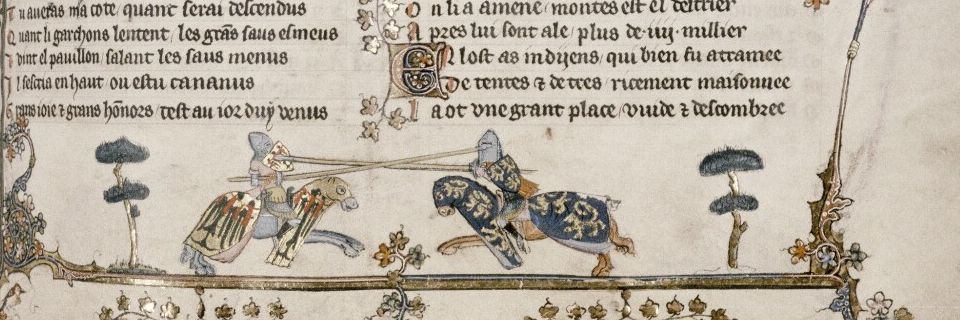 Tu auras ma cote / quant serai descendus
Quant li garchons lentent / les grans saus esmeus
vint el pauillon / salant les saus menus
Il sescria en haut / ou estu cananus
Grans ioie & grans honnors / test au ior duy venus
On li a amene / montes est el destrier
Apres lui sont ale / plus de .iiij. millier
El lost as indijens / qui bien fu atramee
De tentes & de tres / ricement maisonnee
I a ot vne grant place / vuide & descombree